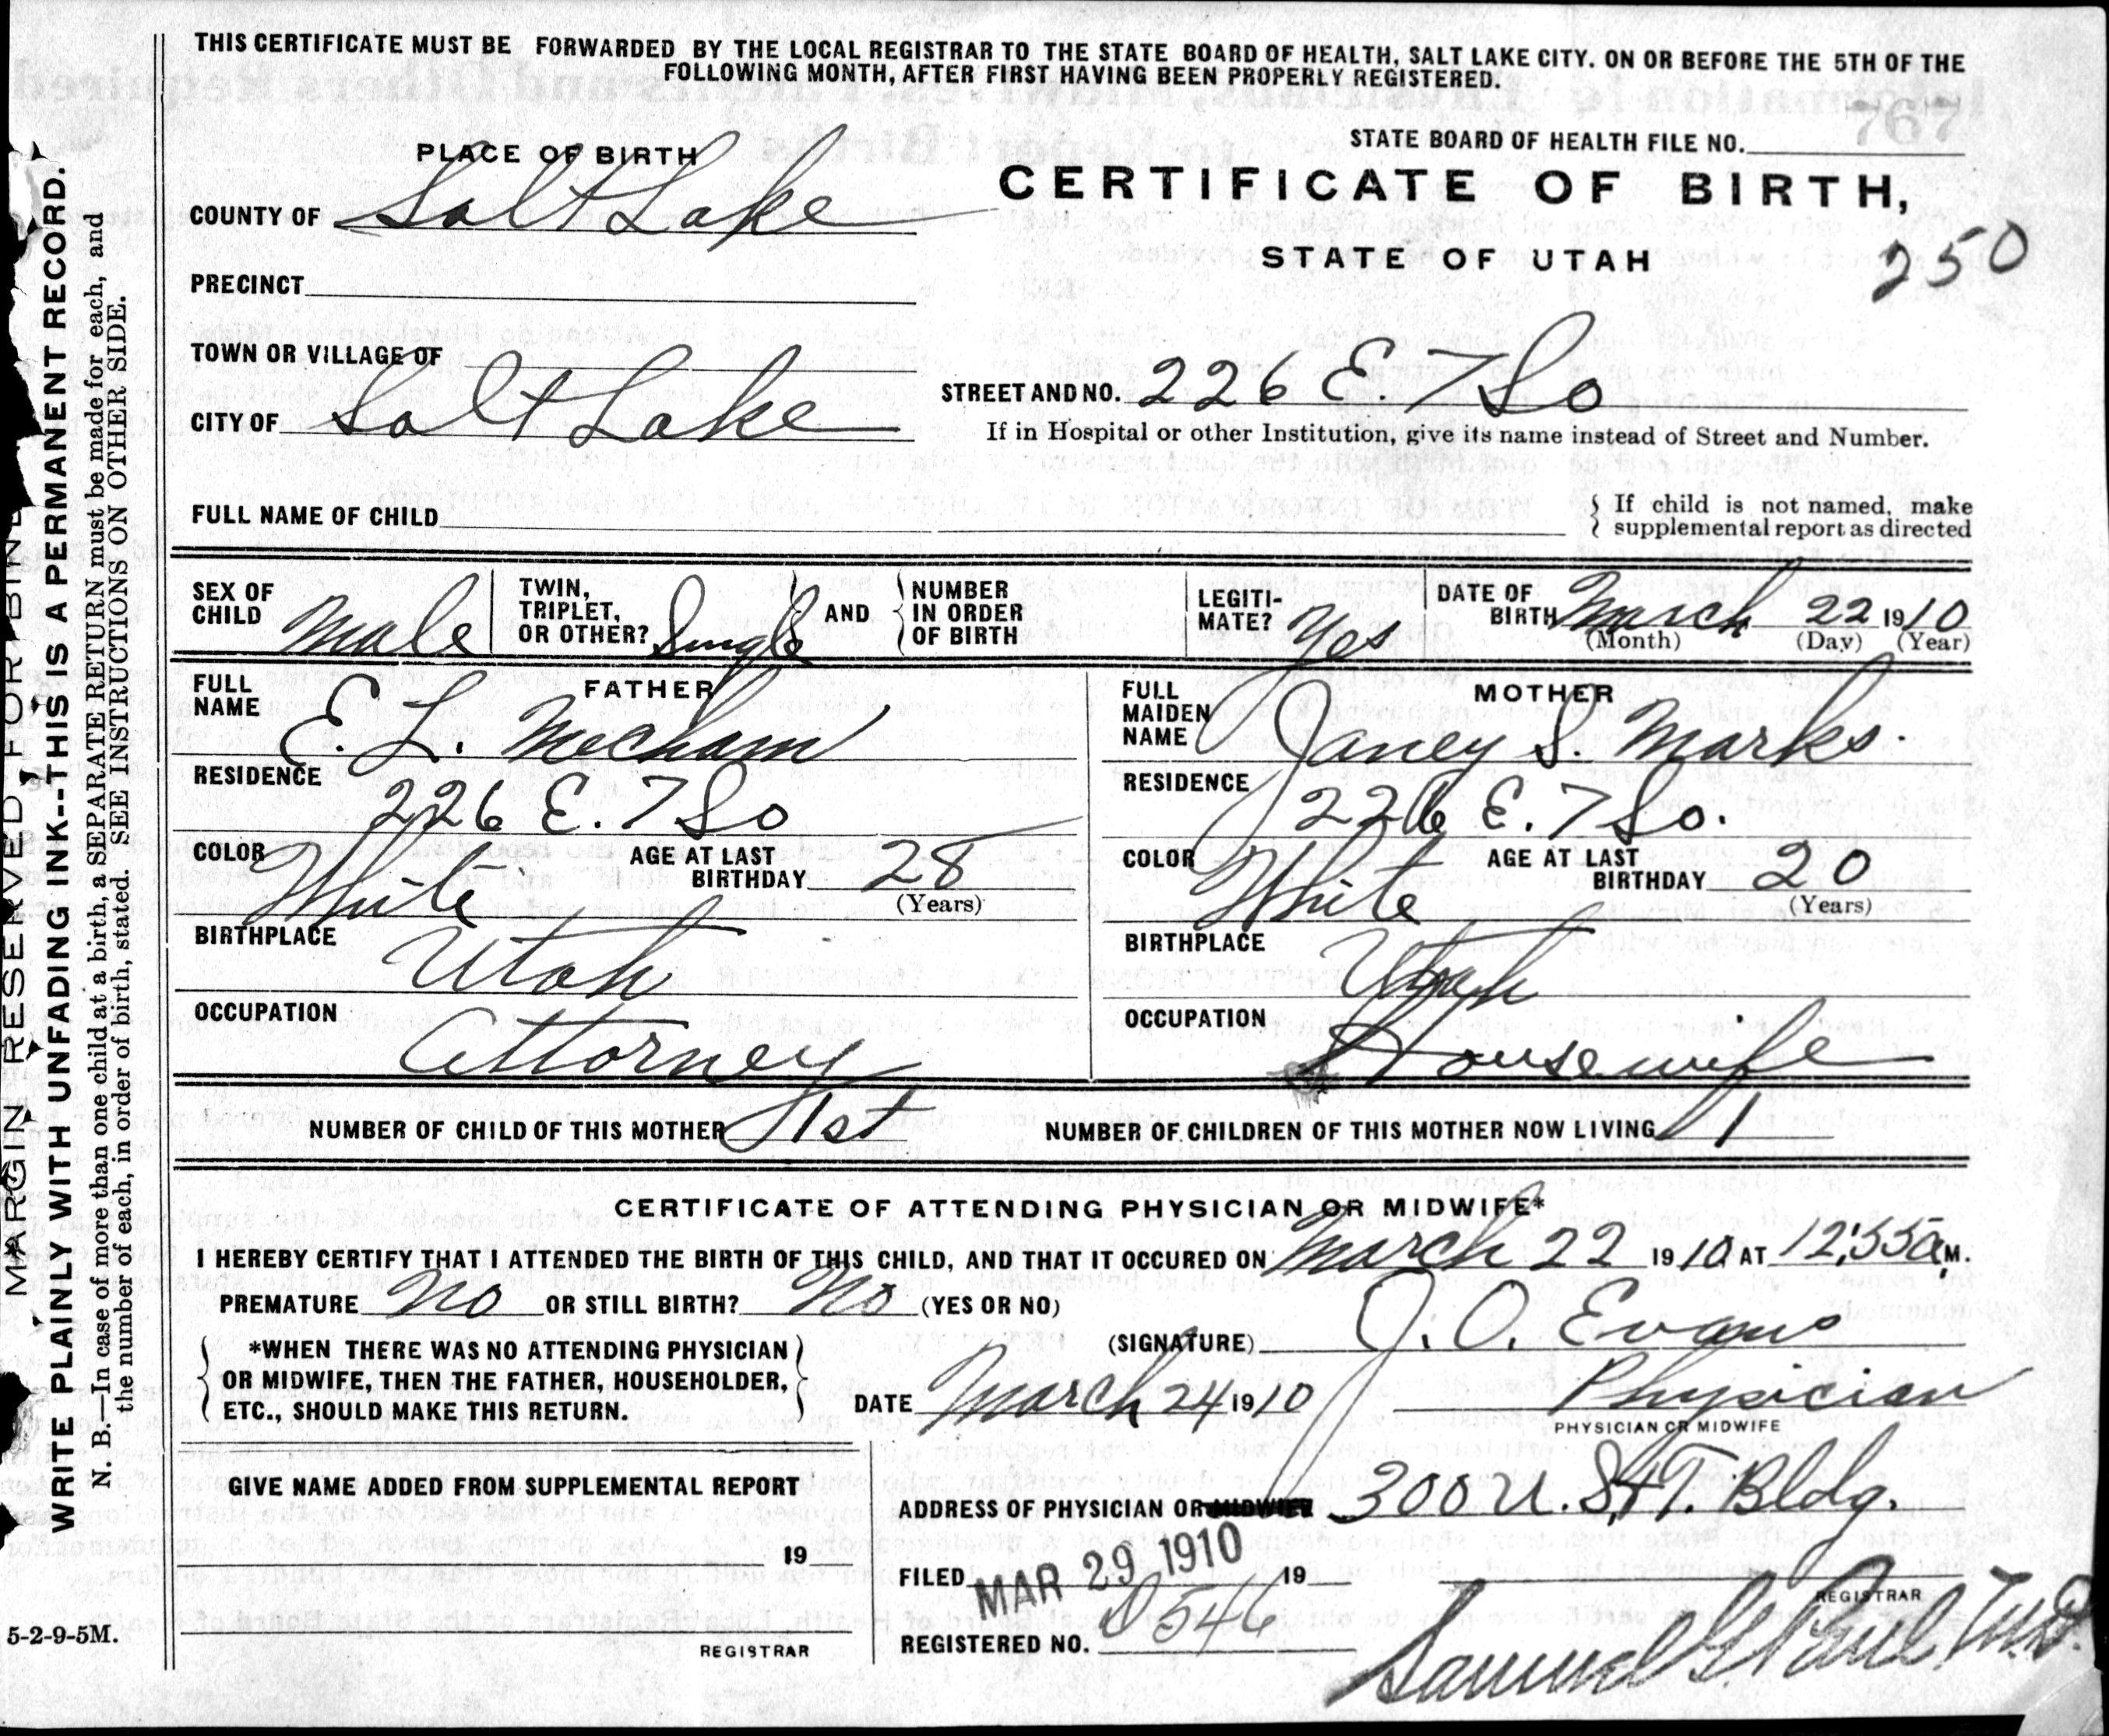 THIS CERTIFICATE MUST BE FORWARDED BY THE LOCAL REGISTRAR TO THE STATE BOARD OF HEALTH, SALT LAKE CITY. ON OR BEFORE THE 5TH OF THE
FOLLOWING MONTH, AFTER FIRST HAVING BEEN PROPERLY REGISTERED.
767
STATE BOARD OF HEALTH FILE NO.
PLACE OF BIRTH
CERTIFICATE OF BIRTH,
COUNTY OF Salt Lake
STATE OF UTAH
250
PRECINCT
TOWN OR VILLAGE OF
STREET AND NO. 226 E. 7 So
CITY OF Salt Lake
If in Hospital or other Institution, give its name instead of Street and Number.
FULL NAME OF CHILD
If child is not named, make
supplemental report as directed
SEX OF CHILD Male
TWIN, TRIPLET, OR OTHER? Single AND NUMBER IN ORDER OF BIRTH
LEGITI-MATE? Yes
DATE OF BIRTH March 22 1910
(Month) (Day) (Year)
FATHER
FULL NAME E. L. Mecham
RESIDENCE 226 E. 7 So
COLOR White AGE AT LAST BIRTHDAY 28
(Years)
BIRTHPLACE Utah
OCCUPATION Attorney
MOTHER
FULL MAIDEN NAME Janey S. Marks.
RESIDENCE 226 E. 7 So.
COLOR White AGE AT LAST BIRTHDAY 20
(Years)
BIRTHPLACE Utah
OCCUPATION Housewife
NUMBER OF CHILD OF THIS MOTHER 1st NUMBER OF CHILDREN OF THIS MOTHER NOW LIVING 1
CERTIFICATE OF ATTENDING PHYSICIAN OR MIDWIFE*
I HEREBY CERTIFY THAT I ATTENDED THE BIRTH OF THIS CHILD, AND THAT IT OCCURED ON March 22 1910 AT 12:55 a M.
PREMATURE No OR STILL BIRTH? No (YES OR NO)
*WHEN THERE WAS NO ATTENDING PHYSICIAN
OR MIDWIFE, THEN THE FATHER, HOUSEHOLDER,
ETC., SHOULD MAKE THIS RETURN.
(SIGNATURE) J. O. Evans
DATE March 24 1910 Physician
PHYSICIAN OR MIDWIFE
GIVE NAME ADDED FROM SUPPLEMENTAL REPORT
19
REGISTRAR
ADDRESS OF PHYSICIAN OR MIDWIFE 300 U. S. & T. Bldg.
FILED MAR 29 1910 19
REGISTRAR
REGISTERED NO. 546
Samuel G. Paul M.D.
5-2-9-5M.
MARGIN RESERVED FOR BINDING
WRITE PLAINLY WITH UNFADING INK--THIS IS A PERMANENT RECORD.
N. B.—In case of more than one child at a birth, a SEPARATE RETURN must be made for each, and
the number of each, in order of birth, stated. SEE INSTRUCTIONS ON OTHER SIDE.